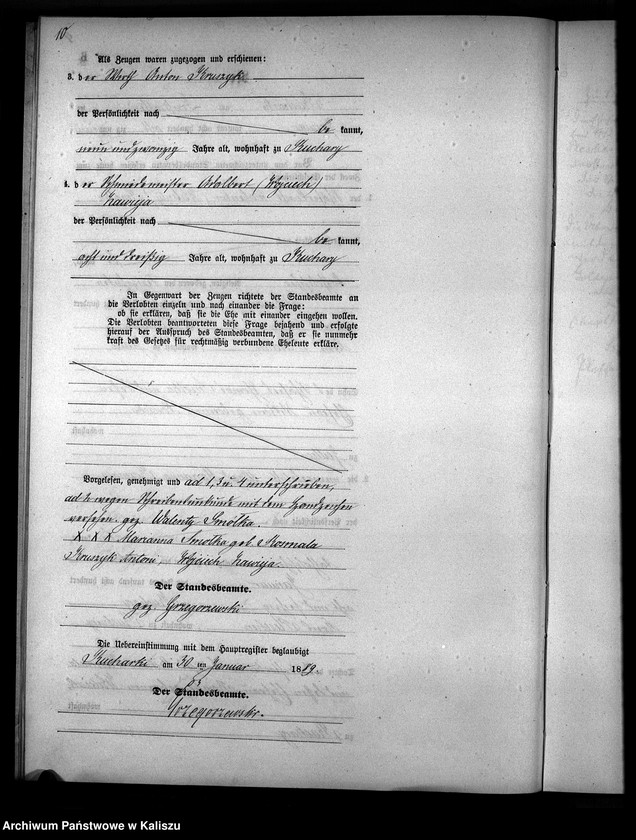 10
Als Zeugen waren zugezogen und erschienen:
3. der Wirth Anton Kruszyk
der Persönlichkeit nach
be kannt,
neun und zwanzig Jahre alt, wohnhaft zu Kuchary
4. der Schmiedemeister Adalbert (Wojciech)
Zawieja
der Persönlichkeit nach
be kannt,
acht und dreißig Jahre alt, wohnhaft zu Kuchary
In Gegenwart der Zeugen richtete der Standesbeamte an
die Verlobten einzeln und nach einander die Frage:
ob sie erklären, daß sie die Ehe mit einander eingehen wollen.
Die Verlobten beantworteten diese Frage bejahend und erfolgte
hierauf der Ausspruch des Standesbeamten, daß er sie nunmehr
kraft des Gesetzes für rechtmäßig verbundene Eheleute erkläre.
Vorgelesen, genehmigt und ad 1, 3 u. 4 unterschrieben,
ad 2 wegen Schreibensunkunde mit dem Handzeichen
versehen. gez. Walenty Smolka.
X X X Marianna Smolka geb.
Kruszyk Antoni Wojciech Zawieja.
Der Standesbeamte.
gez. Grzegorzewski
Die Uebereinstimmung mit dem Hauptregister beglaubigt
Kucharki am 30 ten Januar 1889.
Der Standesbeamte.
Grzegorzewski.
Archiwum Państwowe w Kaliszu